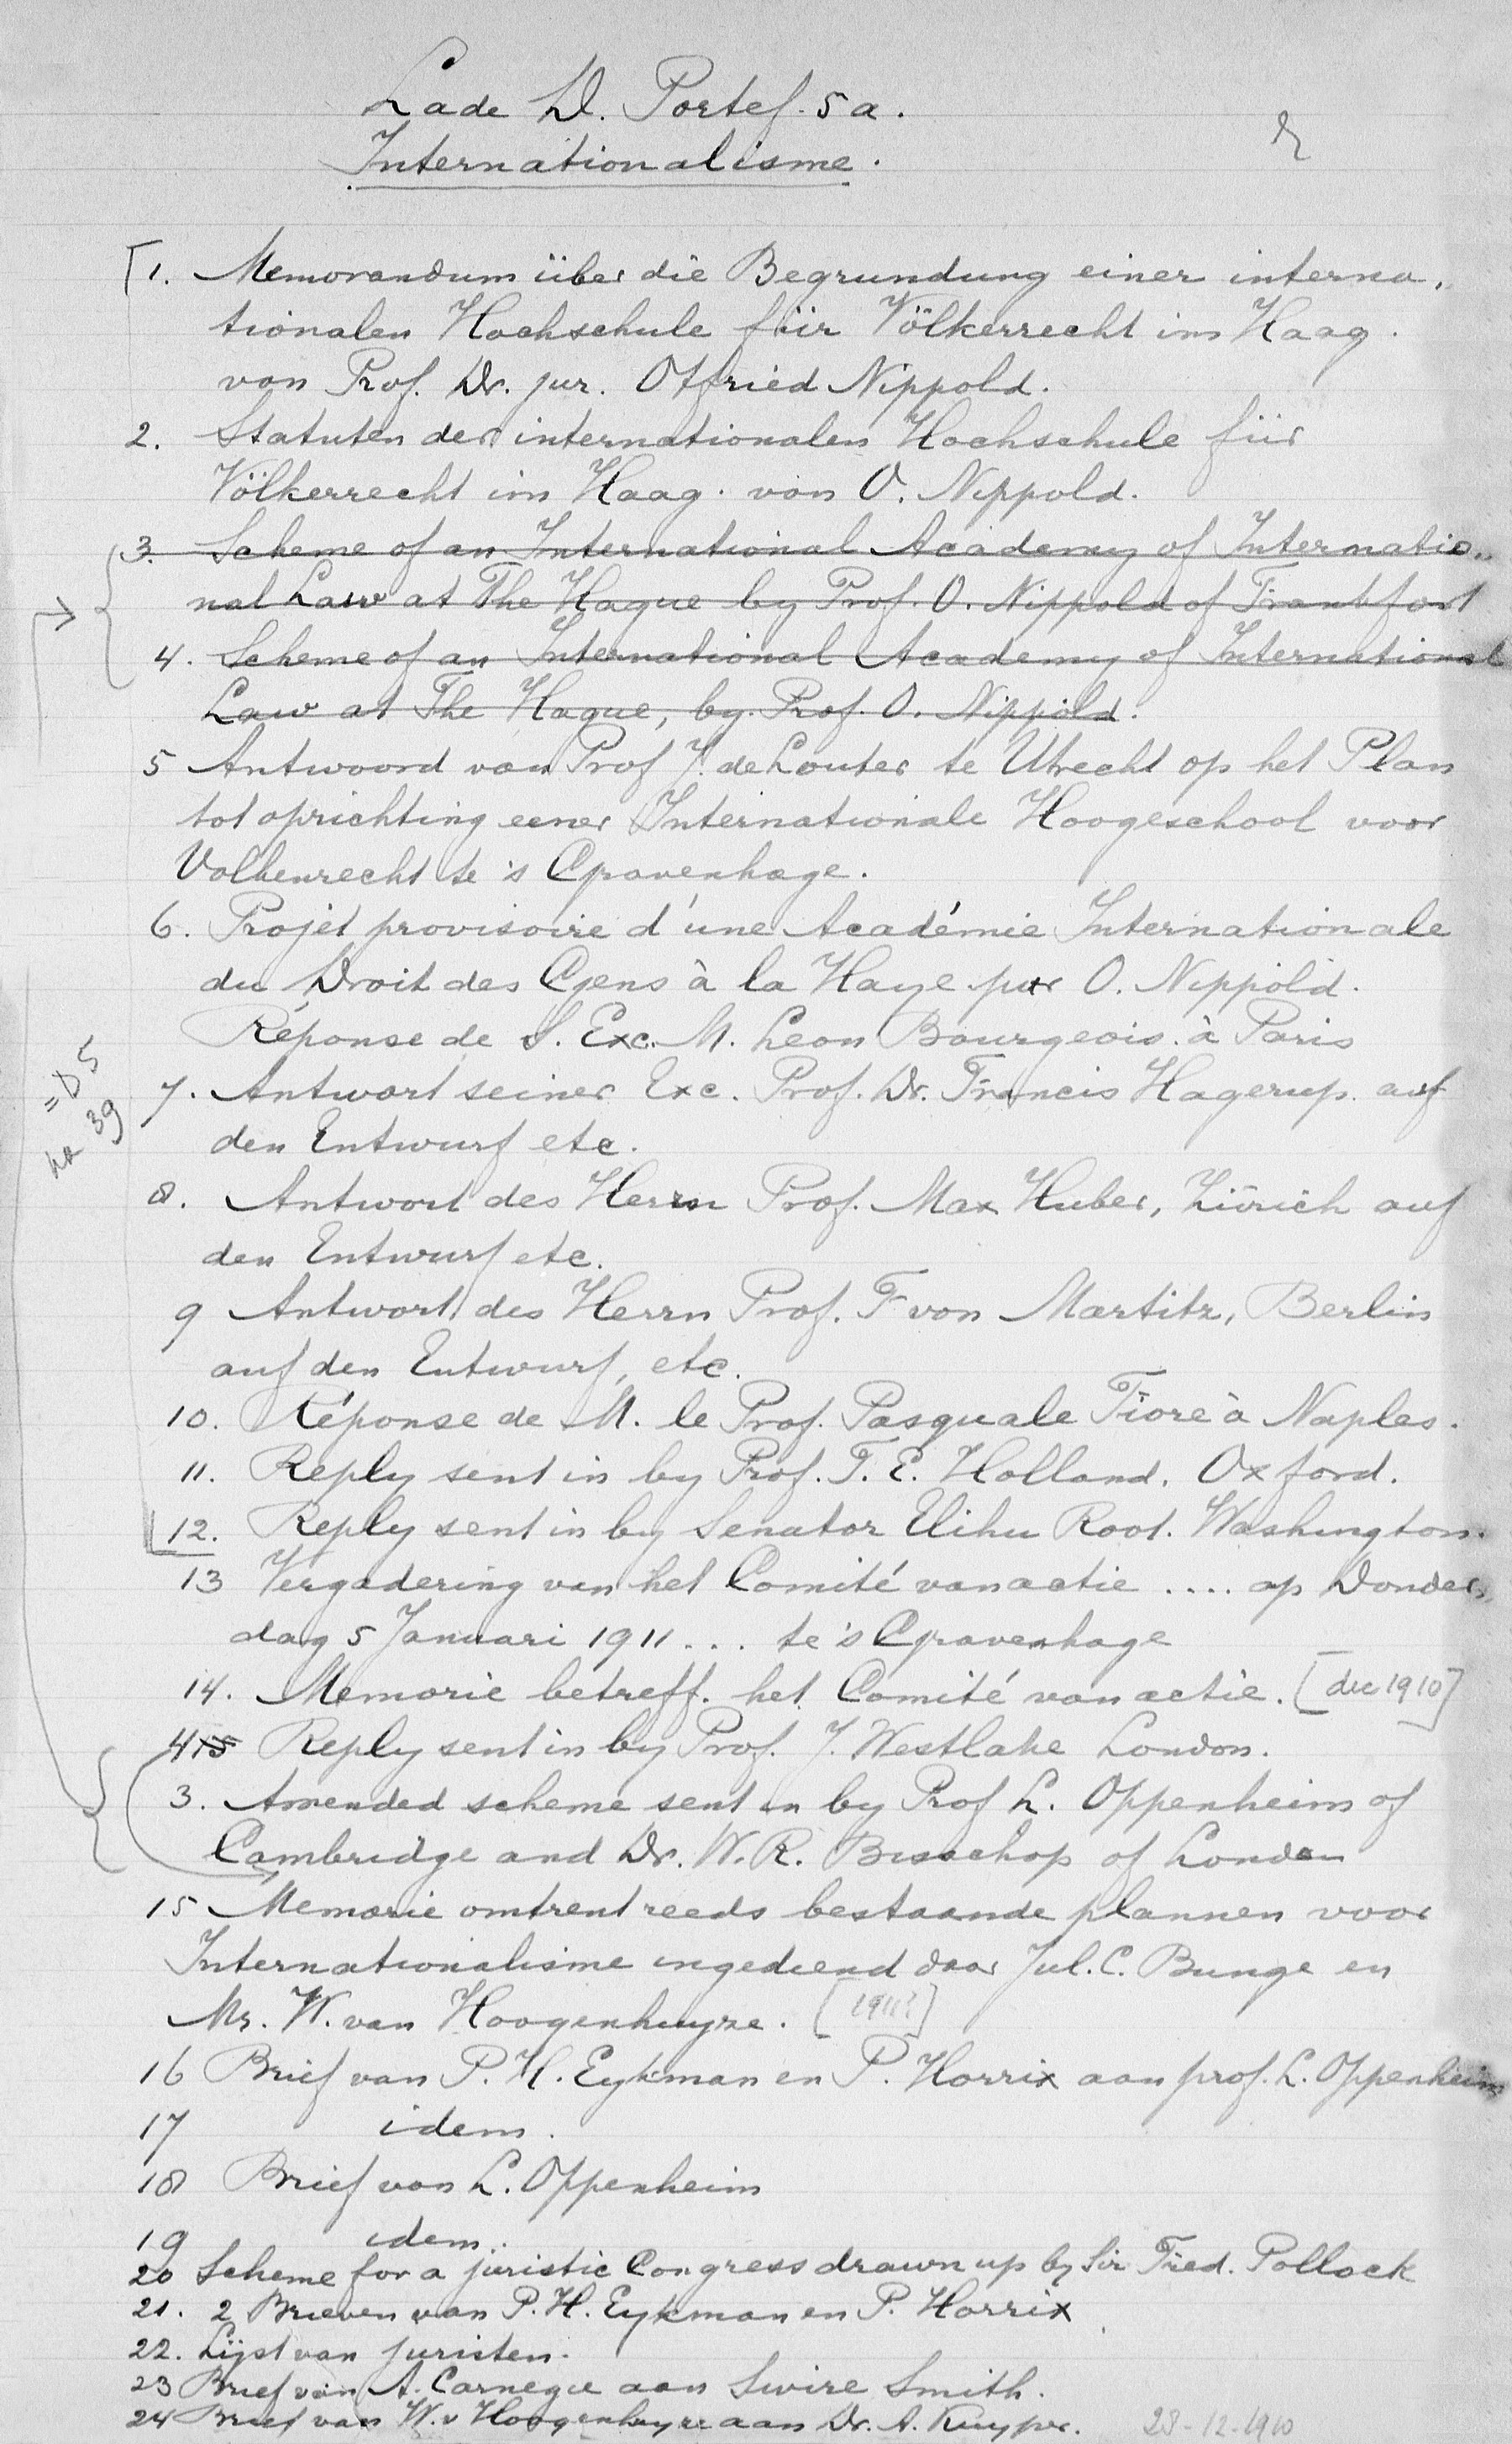 Lade D. Portef. 5a.
Internationalisme.
1. Memorandum über die Begrundung einer interna„
tionalen Hochschule für Völkerrecht im Haag.
von Prof. Dr. jur. Otfried Nippold.
2. Statuten der internationalen Hochschule für
Völkerrecht im Haag. von O. Nippold.
3. Scheme of an International Academy of Internatio„
nal Law at The Hague by Prof. O. Nippold of Frankfort
4. Scheme of an International Academy of International
Law at The Hague, by Prof. O. Nippold.
5 Antwoord van Prof J. de Louter te Utrecht op het Plan
tot oprichting eener Internationale Hoogeschool voor
Volkenrecht te 's Gravenhage.
6. Projet provisoire d'une Académie Internationale
du Droit des Gens à la Haye par O. Nippold.
Réponse de S. Exc. M. Leon Bourgeois à Paris
= D 5
no 39
7. Antwort seiner Exc. Prof. Dr. Francis Hagerup auf
den Entwurf etc.
8. Antwort des Herrn Prof. Max Huber, Zürich auf
den Entwurf etc.
9 Antwort des Herrn Prof. F von Martitz, Berlin
auf den Entwurf, etc.
10. Réponse de M. le Prof. Pasquale Fiore à Naples.
11. Reply sent in by Prof. T. E. Holland. Oxford.
12. Reply sent in by Senator Elihu Root. Washington.
13 Vergadering van het Comité van actie .... op Donder„
dag 5 Januari 1911 ... te 's Gravenhage
14. Memorie betreff. het Comité van actie. [dec 1910]
4 15 Reply sent in by Prof. J. Westlake London.
3. Amended scheme sent in by Prof L. Oppenheim of
Cambridge and Dr. W. R. Bisschop of London
15 Memorie omtrent reeds bestaande plannen voor
Internationalisme ingediend door Jul. C. Bunge en
Mr. W. van Hoogenhuyze. [1911?]
16 Brief van P. H. Eykman en P. Horrix aan prof. L. Oppenheim
17 idem.
18 Brief van L. Oppenheim
19 idem.
20 Scheme for a juristic Congress drawn up by Sir Fred. Pollock
21. 2 Brieven van P. H. Eykman en P. Horrix
22. Lijst van juristen.
23 Brief van A. Carnegie aan Swire Smith.
24 Brief van W. v Hoogenhuyze aan Dr. A. Kuyper. 28-12-1910